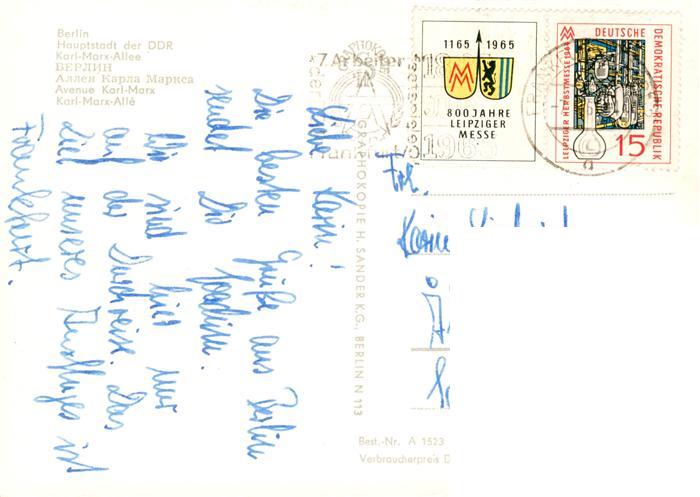 Berlin
Hauptstadt der DDR
Karl-Marx-Allee
БЕРЛИН
Аллея Карла Маркса
Avenue Karl-Marx
Karl-Marx-Allé
1165 1965
800 JAHRE
LEIPZIGER
MESSE
DEUTSCHE
DEMOKRATISCHE REPUBLIK
LEIPZIGER HERBSTMESSE 1964
15
7. Arbeiter
Frankfurt/O
Liebe Karin!
Die besten Grüße aus Berlin
sendet Dir Joachim.
Wir sind hier nur
auf der Durchreise. Das
Ziel unseres Ausfluges ist
Frankfurt.
GRAPHOKOPIE H. SANDER K.G., BERLIN N 113
Frl.
Karin
Best.-Nr. A 1523
Verbraucherpreis D